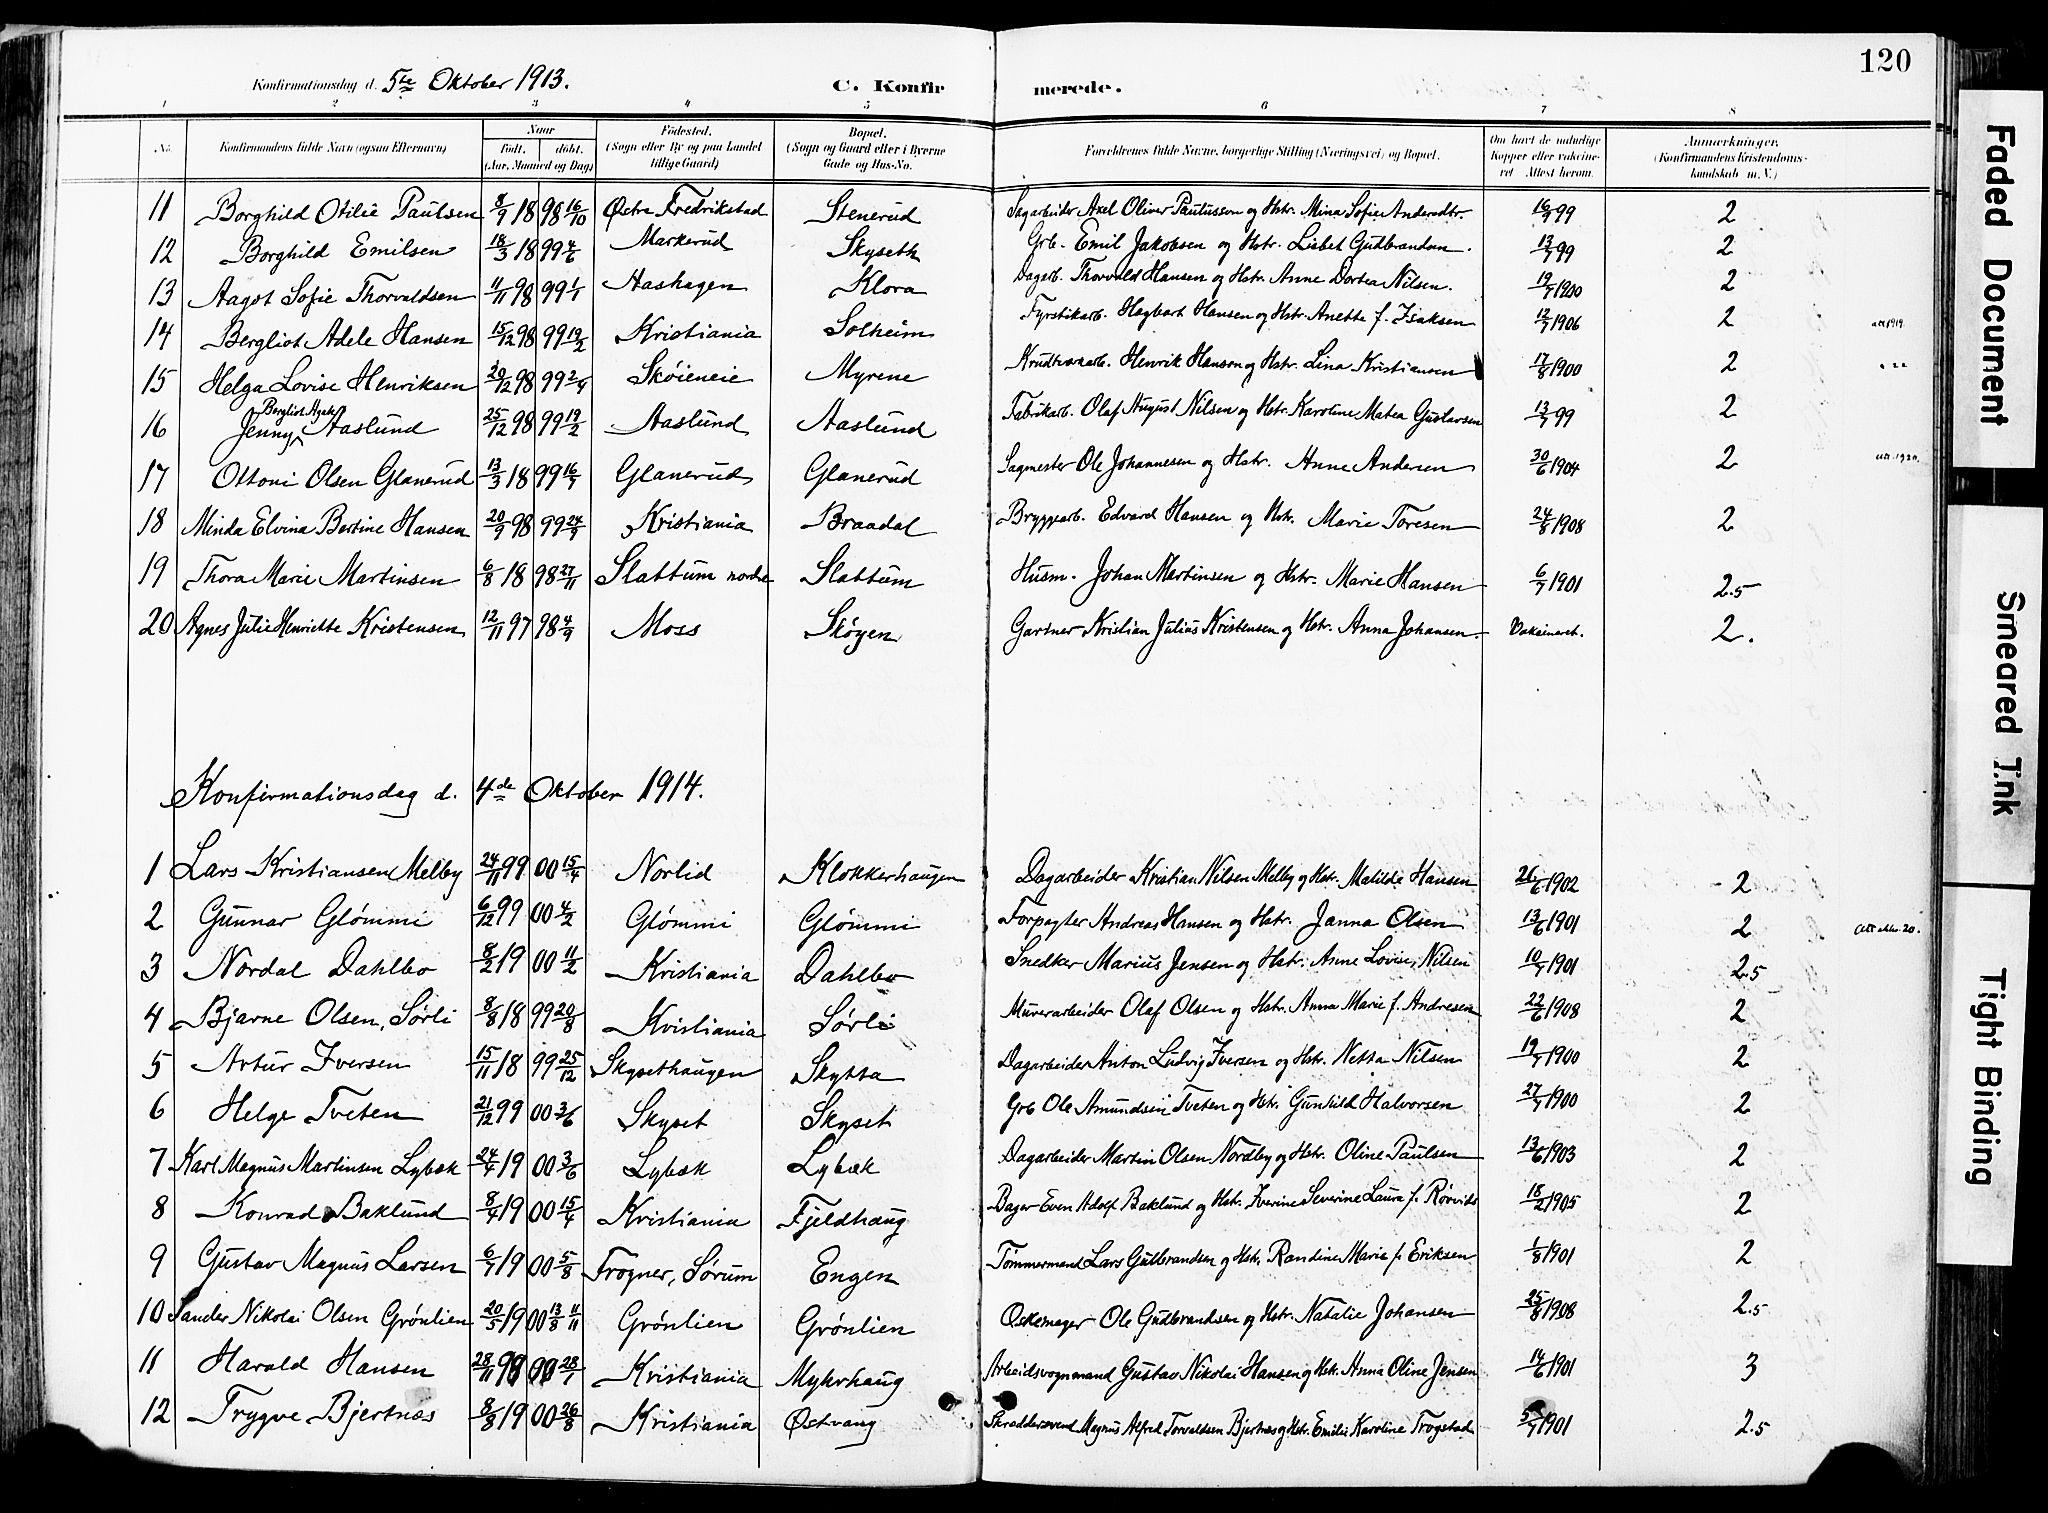 120
Konfirmationsdag d. 5te Oktober 1913. C. Konfirmerede.
1 2 3 4 5 6 7 8
No. Konfirmandens fulde Navn (ogsaa Efternavn) Naar født. døbt. (Aar, Maaned og Dag) Fødested. (Sogn eller By og paa Landet tillige Gaard) Bopæl. (Sogn og Gaard eller i Byerne Gade og Hus-No. Forældrenes fulde Navne, borgerlige Stilling (Næringsvei) og Bopæl. Om havt de naturlige Kopper eller vakcineret Attest herom. Anmærkninger. (Konfirmandens Kristendomskundskab m. V.)
11 Borghild Otilie Paulsen 8/9 1898 16/10 Østre Fredrikstad Stenerud Sagarbeider Axel Oliver Paulusson og Hstr. Mina Sofie Andersdtr. 16/9 99 2
12 Borghild Emilsen 18/3 1899 4/6 Markerud Skyseth Grb. Emil Jakobsen og Hstr. Lisbet Gudbrandsen. 13/7 99 2
13 Aagot Sofie Thorvaldsen 11/11 98 99 1/1 Aashagen Klora Dagarb. Thorvald Hansen og Hstr. Anne Dortea Nilsen. 19/7 1900 2
14 Bergliot Adele Hansen 15/12 98 99 12/2 Kristiania Solheim Fyrstikarb. Hagbart Hansen og Hstr. Anette f. Isaksen 12/7 1906 2 att. 1919.
15 Helga Lovise Henriksen 20/12 98 99 2/4 Skøieneie Myrene Krudtværkarb. Henrik Hansen og Hstr. Lina Kristiansen 17/8 1900 2
16 Jenny Bergliot Agate Aaslund 25/12 98 99 19/2 Aaslund Aaslund Fabrikarb. Olaf August Nilsen og Hstr. Karoline Matea Gustavsen 13/7 99 2
17 Ottoni Olsen Glanerud 13/3 1899 16/7 Glanerud Glanerud Sagmester Ole Johannesen og Hstr. Anne Andersen 30/6 1904 2 att. 1920.
18 Minda Elvina Bertine Hansen 20/9 98 99 24/9 Kristiania Braadal Bryggearb. Edvard Hansen og Hstr. Marie Toresen 24/8 1908 2
19 Thora Marie Martinsen 6/8 1898 27/11 Slattum nordre Slattum Husm. Johan Martinsen og Hstr. Marie Hansen 6/7 1901 2.5
20 Agnes Julie Henriette Kristensen 12/11 97 98 4/9 Moss Skøyen Gartner Kristian Julius Kristensen og Hstr. Anna Johansen. Vakcineret. 2.
Konfirmationsdag d. 4de Oktober 1914.
1 Lars Kristiansen Melby 24/11 99 00 15/4 Norlid Klokkerhaugen Dagarbeider Kristian Nilsen Melby og Hstr. Matilda Hansen 26/6 1902 2
2 Gunnar Glømmi 6/12 99 00 4/2 Glømmi Glømmi Forpagter Andreas Hansen og Hstr. Janna Olsen 13/6 1901 2
3 Nordal Dahlbo 8/2 1900 11/2 Kristiania Dahlbo Snedker Marius Jensen og Hstr. Anne Lovise Nilsen 10/7 1901 2.5
4 Bjarne Olsen, Sørli 8/8 1899 20/8 Kristiania Sørli Murerarbeider Olaf Olsen og Hstr. Anna Marie f. Andresen 22/6 1908 2
5 Artur Iversen 15/11 1899 25/12 Skysethaugen Skytta Dagarbeider Anton Ludvig Iversen og Hstr. Netta Nilsen 19/7 1900 2
6 Helge Tveten 21/12 99 00 3/6 Skyset Skyset Grb Ole Amundsen Tveten og Hstr. Gunhild Halvorsen 27/7 1900 2
7 Karl Magnus Martinsen Lybæk 24/4 1900 3/6 Lybæk Lybæk Dagarbeider Martin Olsen Nordby og Hstr. Oline Paulsen 13/6 1903 2
8 Konrad Baklund 8/4 1900 15/4 Kristiania Fjeldhaug Bager Even Adolf Baklund og Hstr. Iverine Severine Laura f. Rørvik 18/2 1905 2
9 Gustav Magnus Larsen 6/7 1900 5/8 Frogner, Sørum Engen Tømmermand Lars Gulbrandsen og Hstr. Randine Marie f. Eriksen 1/8 1901 2
10 Sander Nikolai Olsen Grønlien 20/5 1900 13/8 11/11 Grønlien Grønlien Øskemager Ole Gudbrandsen og Hstr. Natalie Johansen 25/8 1908 2.5
11 Harald Hansen 28/11 99 00 28/1 Kristiania Myhrhaug Arbeidsvognmand Gustav Nikolai Hansen og Hstr. Anna Oline Jensen 14/6 1901 3
12 Trygve Bjertnæs 8/8 1900 26/8 Kristiania Østvang Skræddersvend Magnus Alfred Torvaldsen Bjertnæs og Hstr. Emilie Karoline Trogstad 5/7 1901 2.5
Faded Document
Smeared Ink
Tight Binding